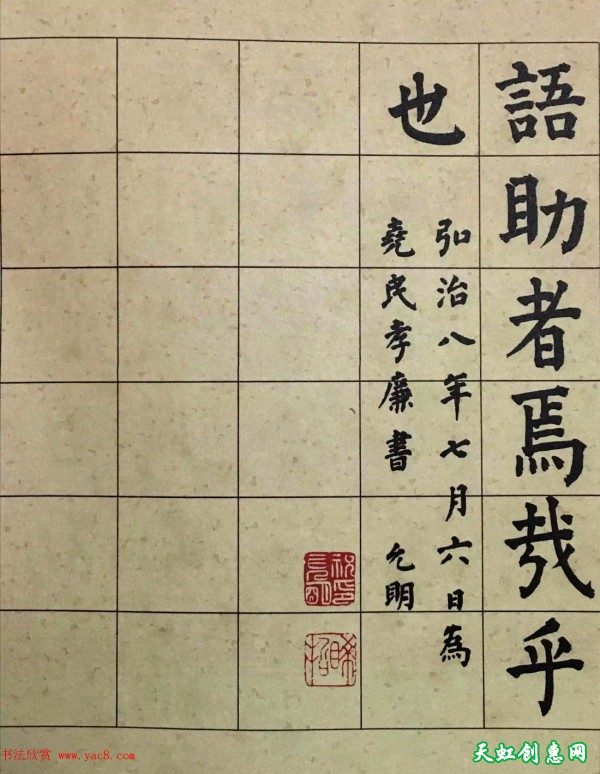 語助者焉哉乎
也
弘治八年七月六日為
堯民孝廉書 允明
祝允明印
晞招
书法欣赏 www.yac8.com
天虹创惠网